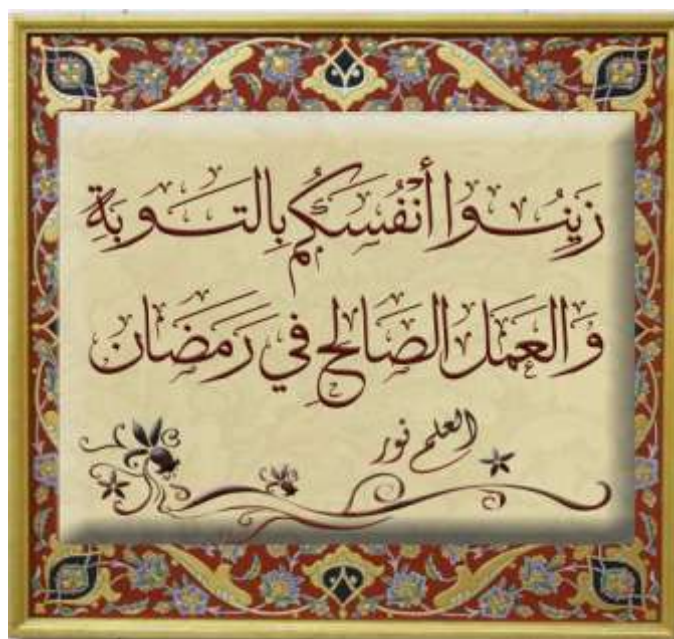 زَيِنُوا أَنْفُسَكُم بِالتَوبَةِ
وَالعَمَل الصَالِح في رَمَضَان
العلم نور